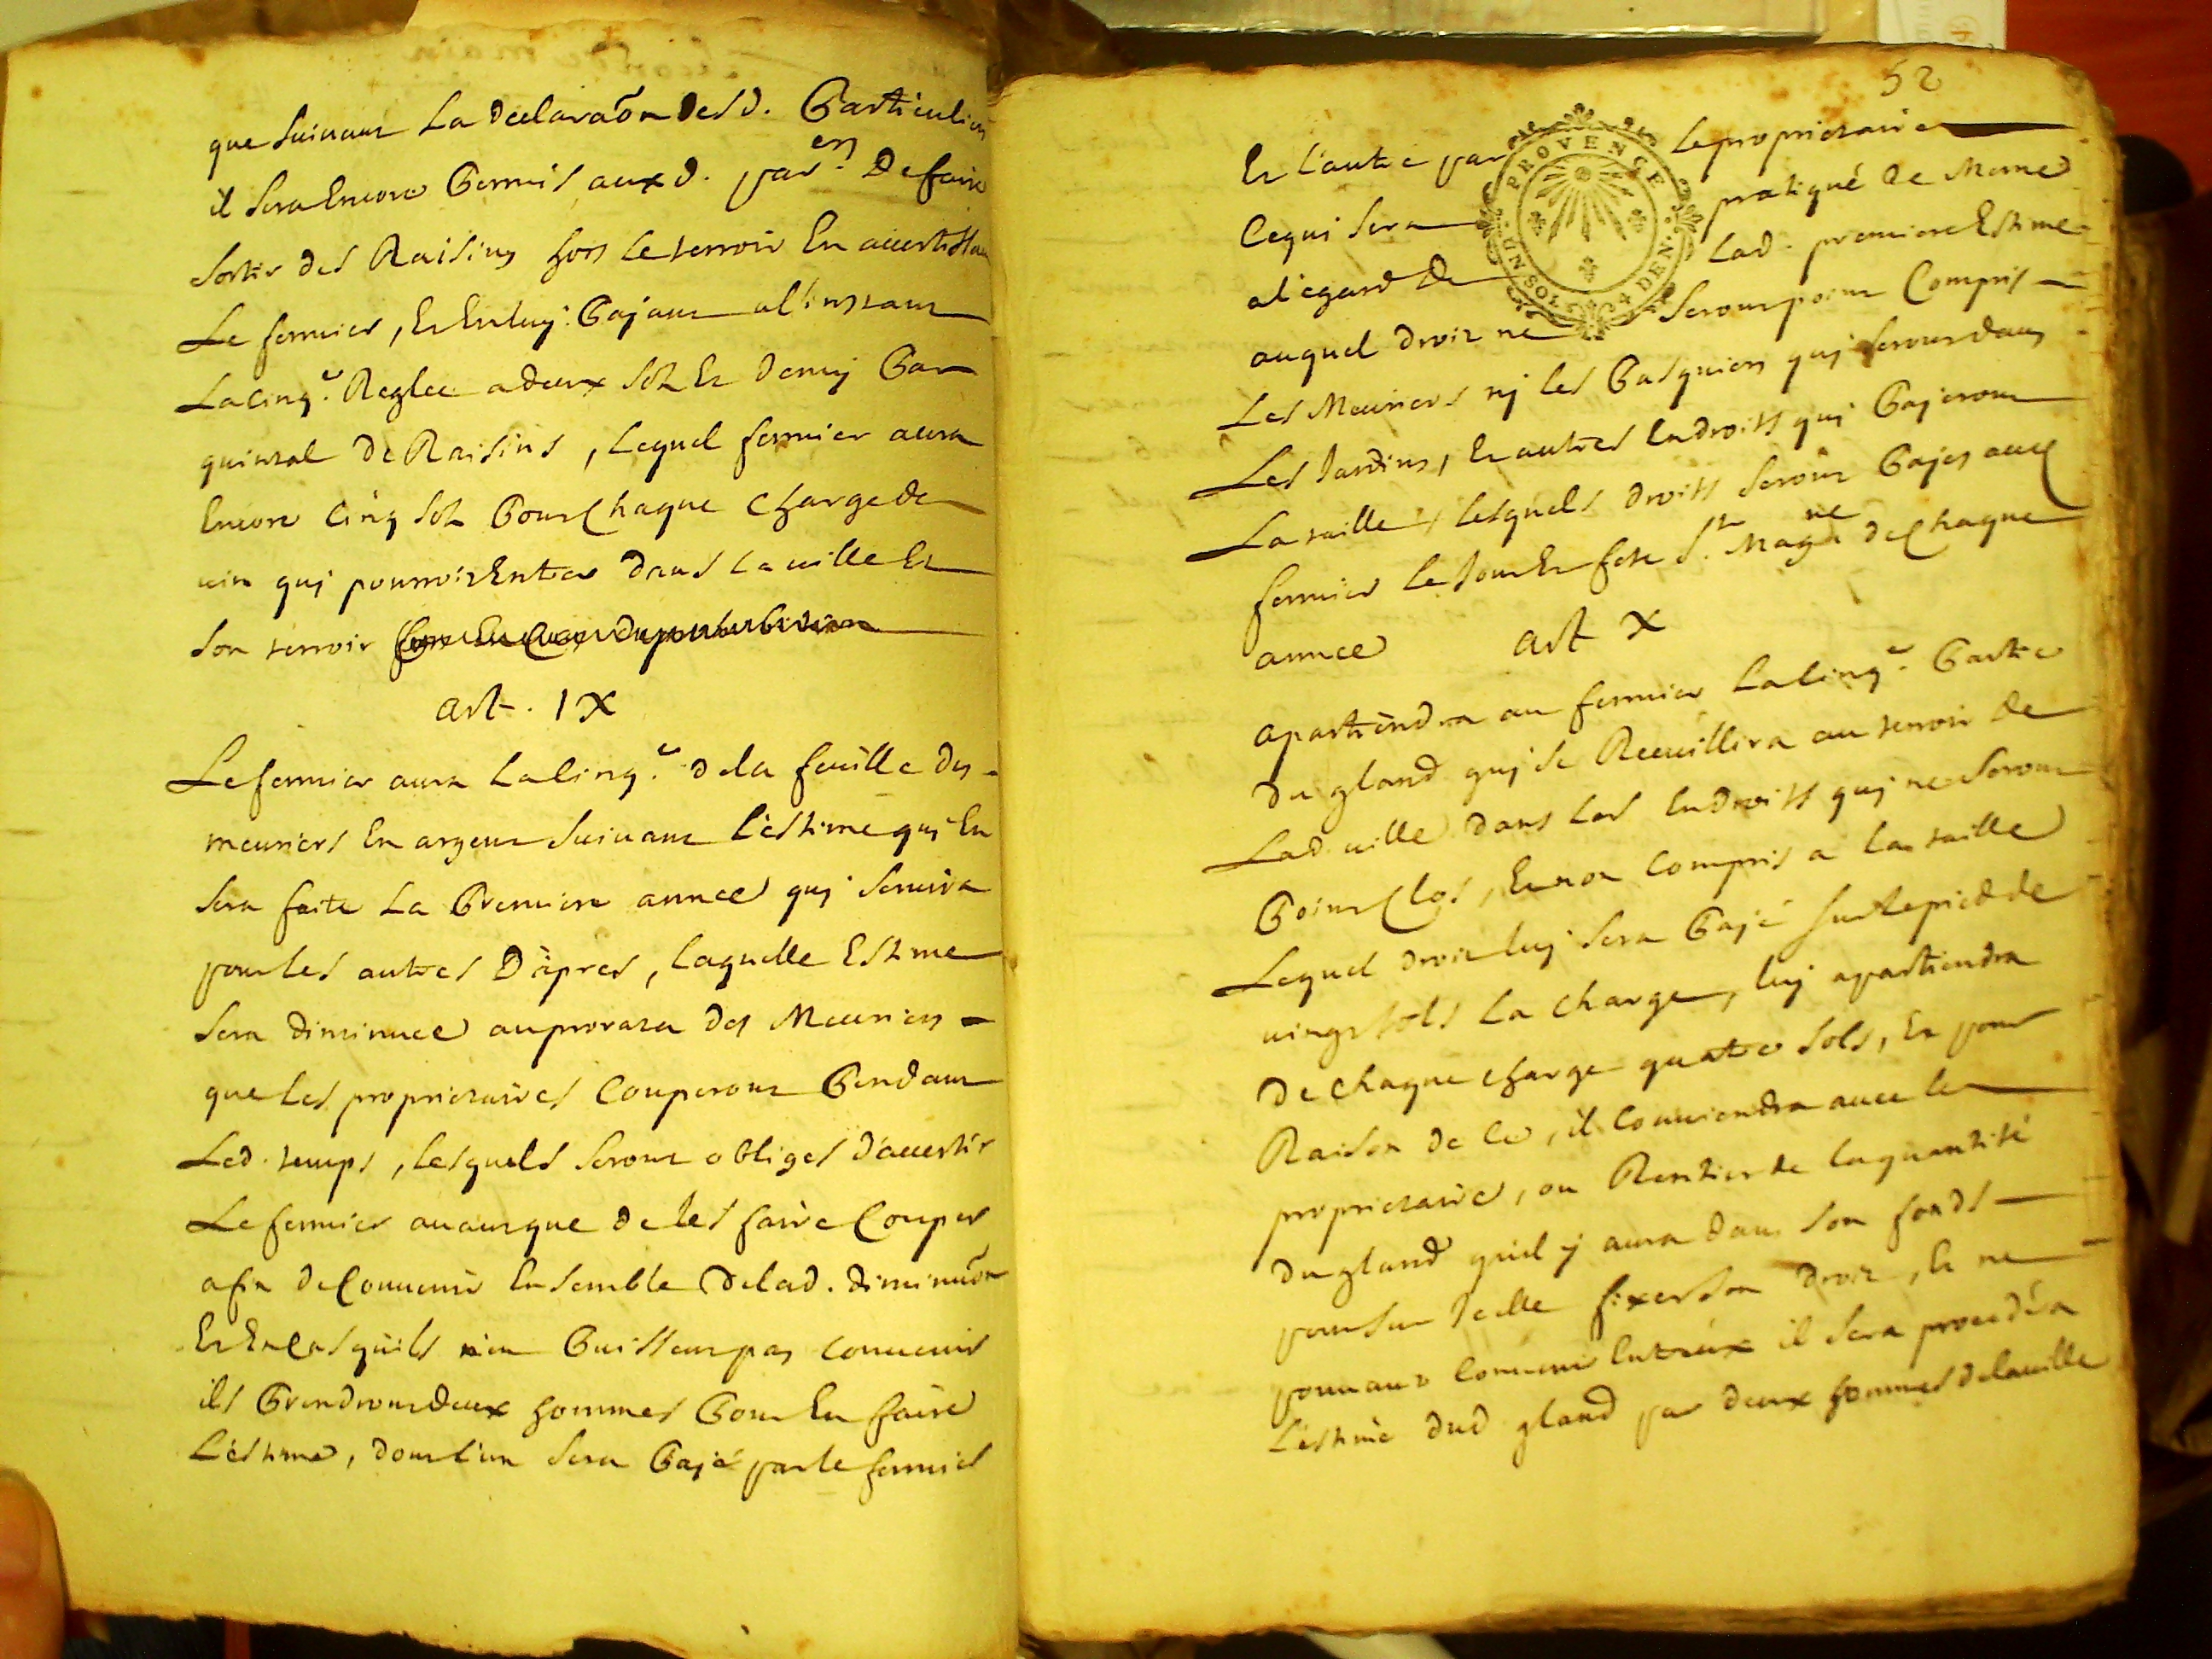 que suivant La declara͠on des d. Particuliers
il sera Encore Permis aux d. par.ers De faire
sortir des Raisins hors le terroir En avertissan
Le fermier, Et En luy Pajant al'instant
La cinq.e Reglee a deux sols Et demy Par
quintal de Raisins, Lequel fermier aura
Encore Cinq sols Pour Chaque Charge de
vin quj pourroit Entrer dans La ville Et
son terroir
art. IX
Le fermier aura La Cinq.e de la feuille des
meuriers En argent suivant l'estime quj En
sera faite La Premiere annee quj servira
pour les autres D'apres, Laquelle Estime
sera diminuee au prorata des Meuriers
que Les proprietaires Couperont Pendant
Led. temps, Lesquels seront obliges d'avertir
Le fermier avant que de les faire Couper
afin de Convenir Ensemble de lad. diminu͠on
Et En Cas qu'ils n'en Puissent pas Convenir
ils Prendront deux hommes Pour En faire
L'estime, dont l'un sera Pajé par le fermier
52
Et l'autre par Le proprietaire
Ce qui sera pratiqué de Meme
al'egard de Lad. premiere Estime
auquel droit ne seront point Compris
Les Meuriers nj les Pasquiers quj seront dans
Les Jardins, Et autres Endroits quj Pajeront
La taille, Lesquels droits seront Pajes au
fermier le Jour Et fete S.te Mag.ne de Chaque
annee
art X
apartiendra au fermier La Cinq.e Partie
du gland quj se Recuillira au terroir de
Lad. ville dans Les Endroits quj ne seront
Point Clos, Et non Compris a La taille
Lequel droit luj sera Pajé sur le pied de
vingt sols La Charge, luj apartiendra
de Chaque Charge quatre sols, Et pour
Raison de Ce, il Conviendra avec le
proprietaire, ou Rentier de La quantité
du gland qu'il y aura dans son fonds
pour sur Icelle fixer son droit, Et ne
pouvant Convenir Entreux il sera procedé a
L'estime dud gland par deux hommes de la ville
PROVENCE
UN SOL 4 DEN.